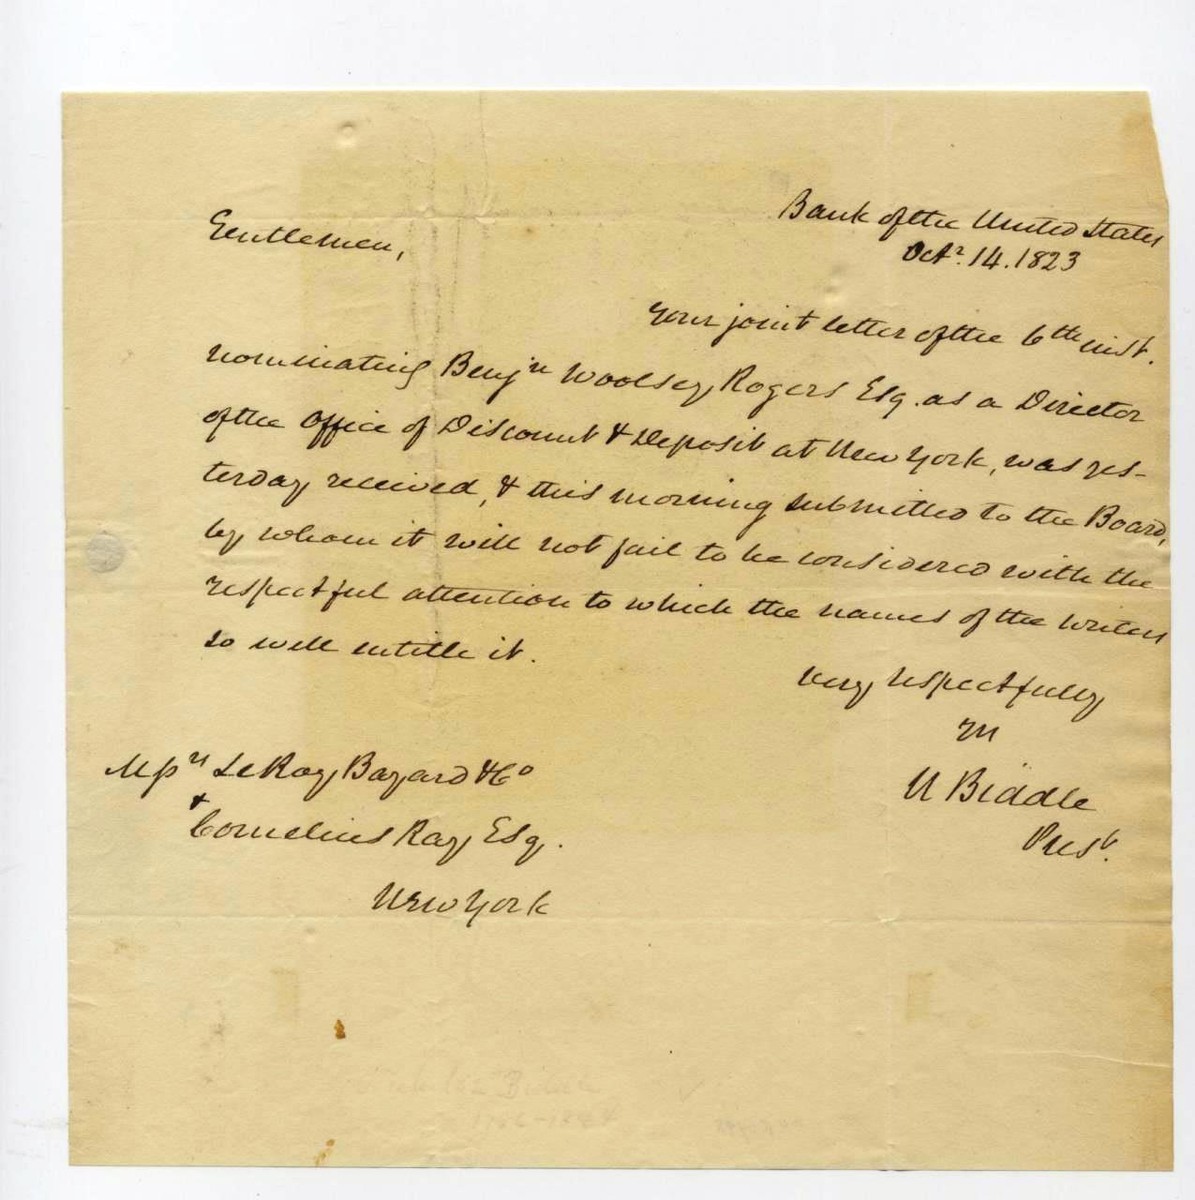 Bank of the United States
Octr. 14. 1823
Gentlemen,
Your joint letter of the 6th inst.
nominating Benjn Woolsey Rogers Esq. as a Director
of the Office of Discount & Deposit at New York, was yes-
terday received, & this morning submitted to the Board,
by whom it will not fail to be considered with the
respectful attention to which the names of the writers
so well entitle it.
very respectfully
Yrs
N Biddle
Prest.
Messrs LeRoy Bayard & Co
&
Cornelius Ray Esq.
New York
Nicholas Biddle
1786-1844